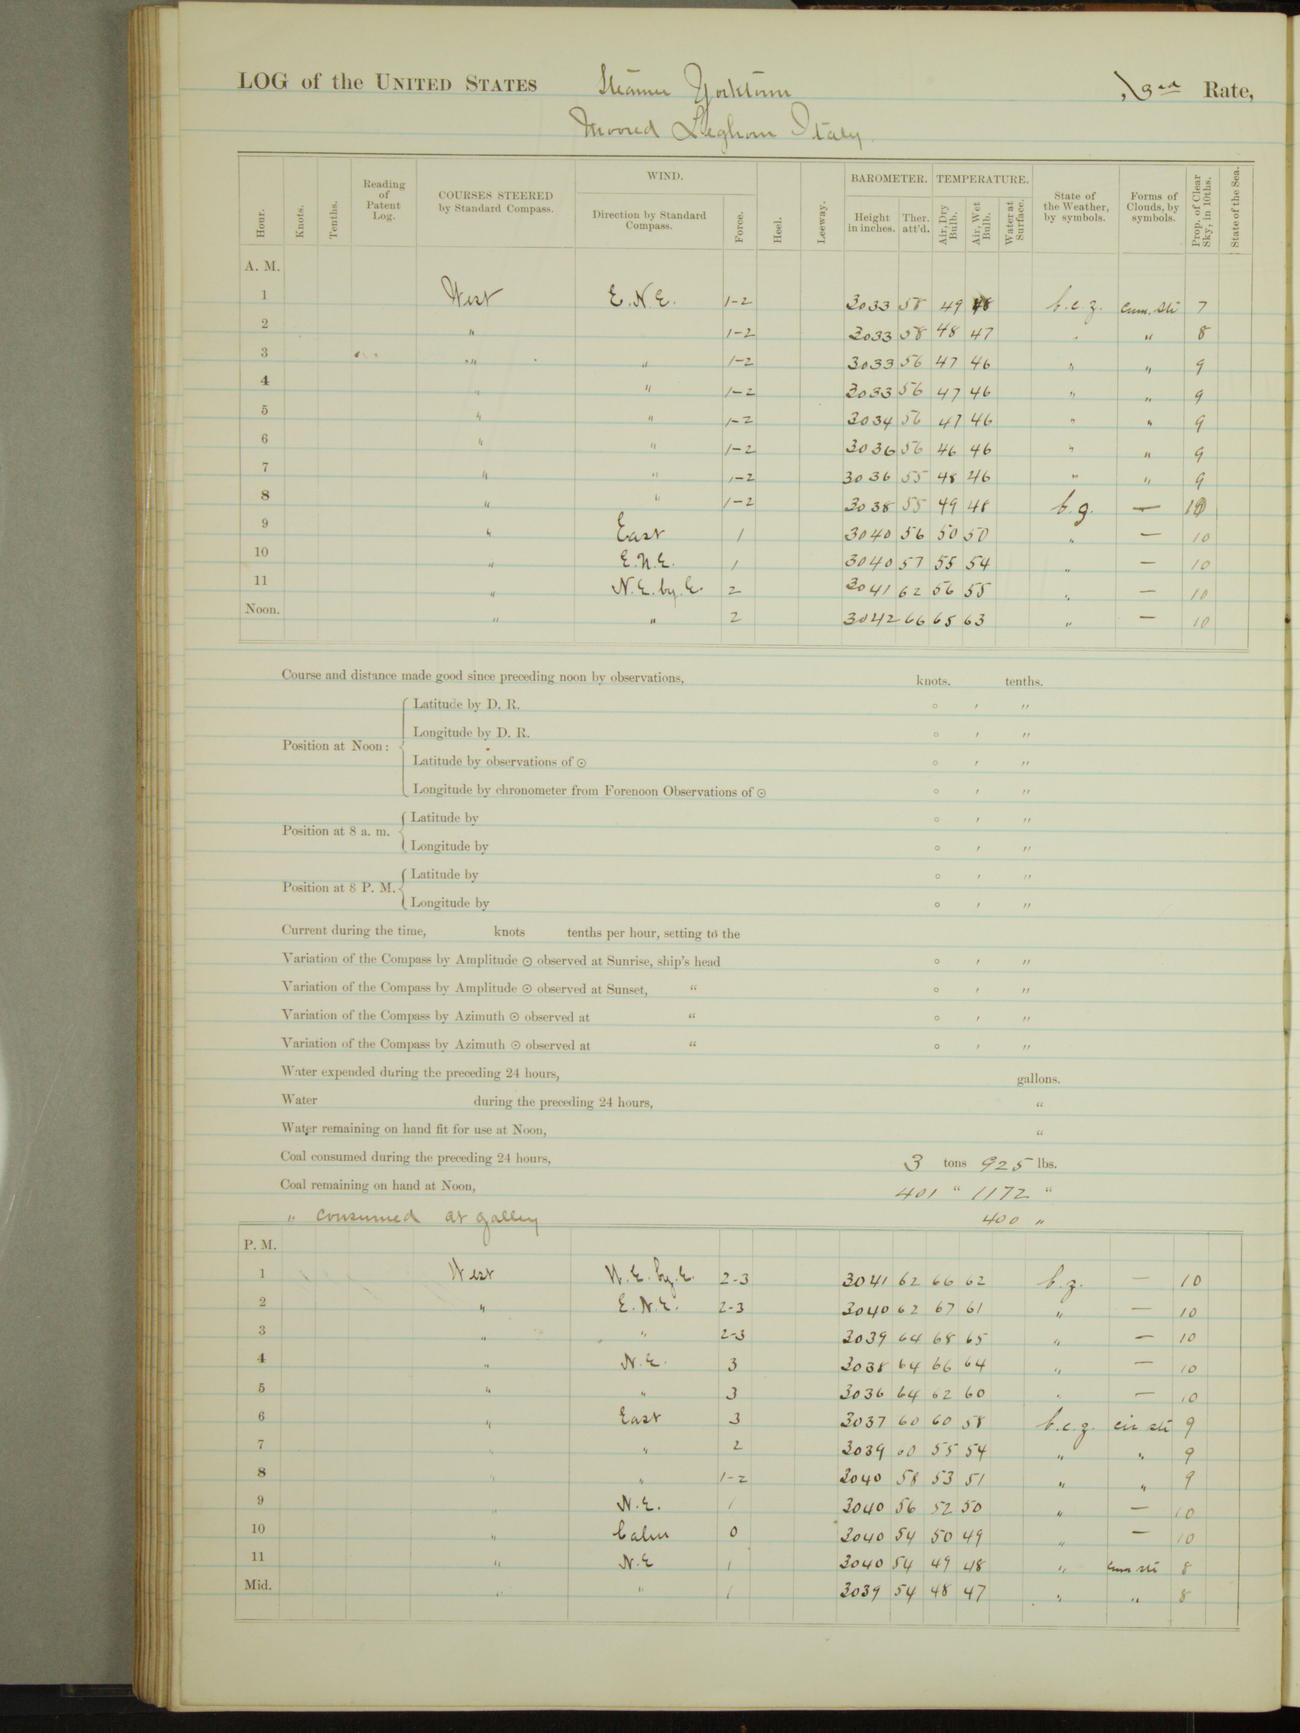 LOG of the UNITED STATES Steamer Yorktown , 3rd Rate,
Moored Leghorn Italy.
Hour. Knots. Tenths. Reading of Patent Log. COURSES STEERED by Standard Compass. WIND. Direction by Standard Compass. Force. Heel. Leeway. BAROMETER. Height in inches. Ther. att'd. TEMPERATURE. Air, Dry Bulb. Air, Wet Bulb. Water at Surface. State of the Weather, by symbols. Forms of Clouds, by symbols. Prop. of Clear Sky, in 10ths. State of the Sea.
A. M.
1 West E.N.E. 1-2 3033 58 49 48 b.c.z. Cum. Sti 7
2 " 1-2 3033 58 48 47 " " 8
3 " " 1-2 3033 56 47 46 " " 9
4 " " 1-2 3033 56 47 46 " " 9
5 " " 1-2 3034 56 47 46 " " 9
6 " " 1-2 3036 56 46 46 " " 9
7 " " 1-2 3036 55 48 46 " " 9
8 " " 1-2 3038 55 49 48 b.g. — 10
9 " East 1 3040 56 50 50 " — 10
10 " E.N.E. 1 3040 57 55 54 " — 10
11 " N.E. by E. 2 3041 62 56 55 " — 10
Noon. " " 2 3042 66 65 63 " — 10
Course and distance made good since preceding noon by observations, knots. tenths.
Position at Noon: Latitude by D. R. ° ' "
Longitude by D. R. ° ' "
Latitude by observations of ⊙ ° ' "
Longitude by chronometer from Forenoon Observations of ⊙ ° ' "
Position at 8 a. m. Latitude by ° ' "
Longitude by ° ' "
Position at 8 P. M. Latitude by ° ' "
Longitude by ° ' "
Current during the time, knots tenths per hour, setting to the
Variation of the Compass by Amplitude ⊙ observed at Sunrise, ship's head ° ' "
Variation of the Compass by Amplitude ⊙ observed at Sunset, " ° ' "
Variation of the Compass by Azimuth ⊙ observed at " ° ' "
Variation of the Compass by Azimuth ⊙ observed at " ° ' "
Water expended during the preceding 24 hours, gallons.
Water during the preceding 24 hours, "
Water remaining on hand fit for use at Noon, "
Coal consumed during the preceding 24 hours, 3 tons 925 lbs.
Coal remaining on hand at Noon, 401 " 1172 "
" consumed at galley 400 "
P. M.
1 West N.E. by E. 2-3 3041 62 66 62 b.z. — 10
2 " E.N.E. 2-3 3040 62 67 61 " — 10
3 " " 2-3 3039 64 68 65 " — 10
4 " N.E. 3 3038 64 66 64 " — 10
5 " " 3 3036 64 62 60 " — 10
6 " East 3 3037 60 60 58 b.c.z. cir sti 9
7 " " 2 3039 60 55 54 " " 9
8 " " 1-2 3040 58 53 51 " " 9
9 " N.E. 1 3040 56 52 50 " — 10
10 " Calm 0 3040 54 50 49 " — 10
11 " N.E 1 3040 54 49 48 " Cum sti 8
Mid. " " 1 3039 54 48 47 " " 8